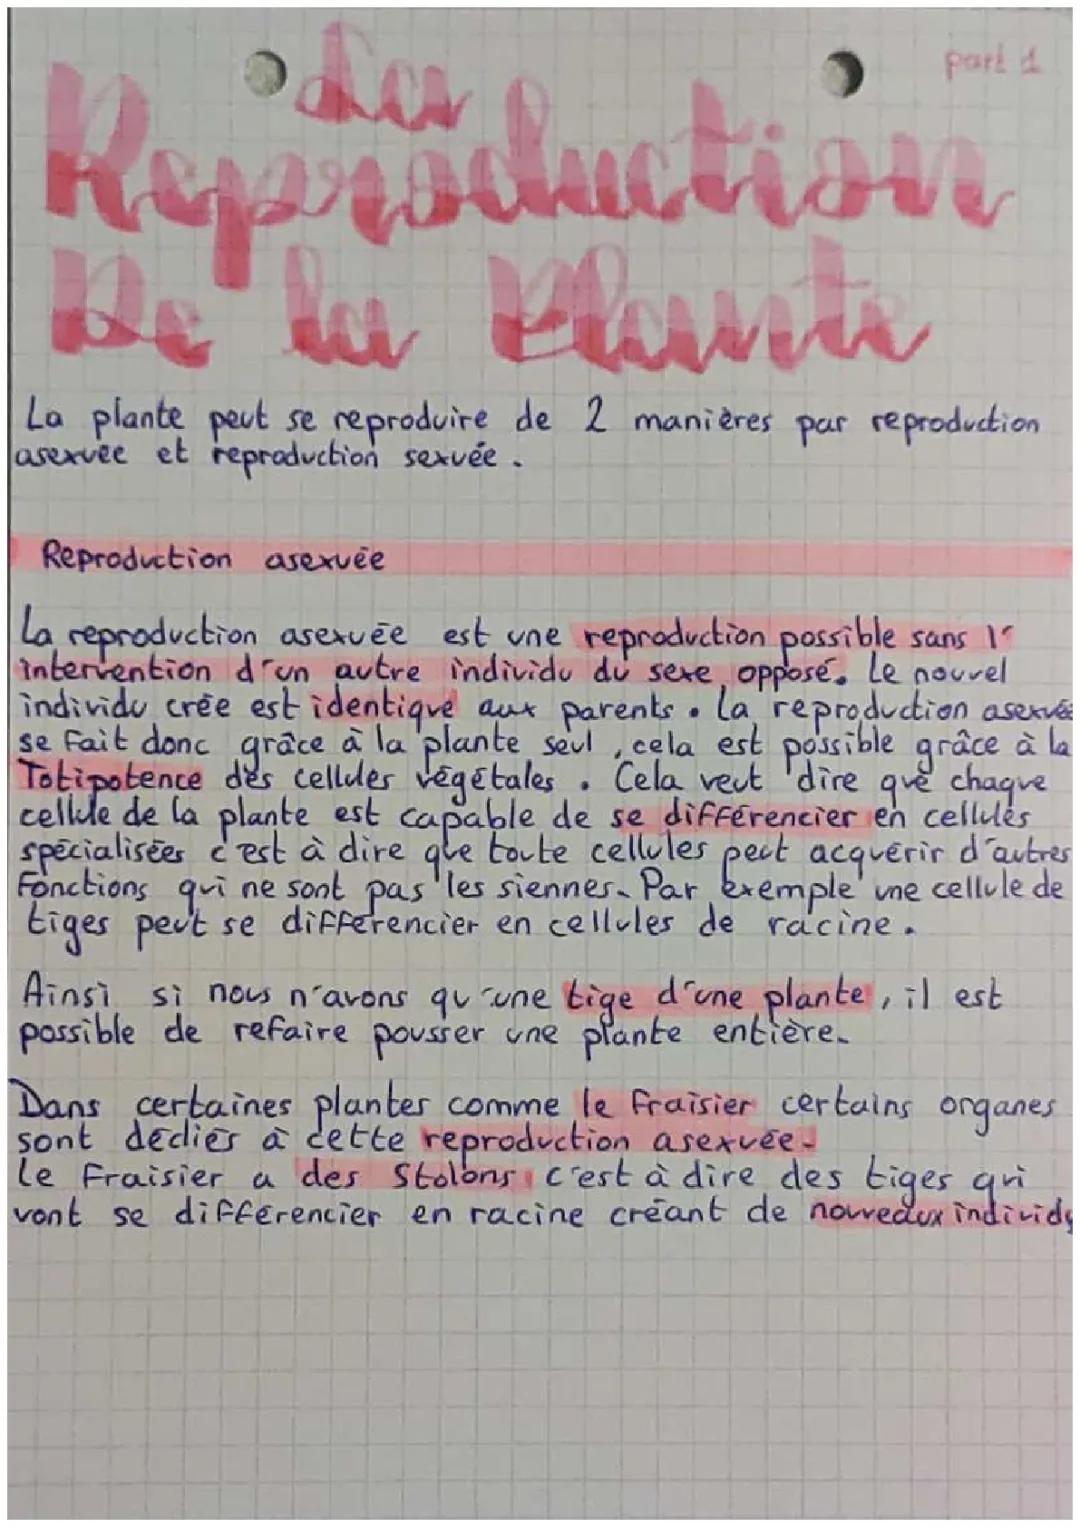 part 1
La
Reproduction
De la Plante
La plante peut se reproduire de 2 manières par reproduction
asexuée et reproduction sexuée.
Reproduction asexuée
La reproduction asexuée est une reproduction possible sans l'
intervention d'un autre individu du sexe opposé. Le nouvel
individu crée est identique aux parents. La reproduction asexuée
se fait donc grâce à la plante seul, cela est possible grâce à la
Totipotence des cellules végétales. Cela veut dire que chaque
cellule de la plante est capable de se différencier en cellules
spécialisées c'est à dire que toute cellules peut acquérir d'autres
fonctions qui ne sont pas les siennes. Par exemple une cellule de
tiges peut se différencier en cellules de racine.
Ainsi si nous n'avons qu'une tige d'une plante, il est
possible de refaire pousser une plante entière.
Dans certaines plantes comme le fraisier certains organes
sont dédiés à cette reproduction asexuée.
Le Fraisier a des Stolons c'est à dire des tiges qui
vont se différencier en racine créant de nouveaux individu